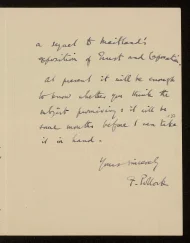 a sequel to Maitland's
exposition of Trust and Corporation.
At present it will be enough
to know whether you think the
subject promising: it will be
some months before I can take
it in hand.
Yours sincerely
F. Pollock